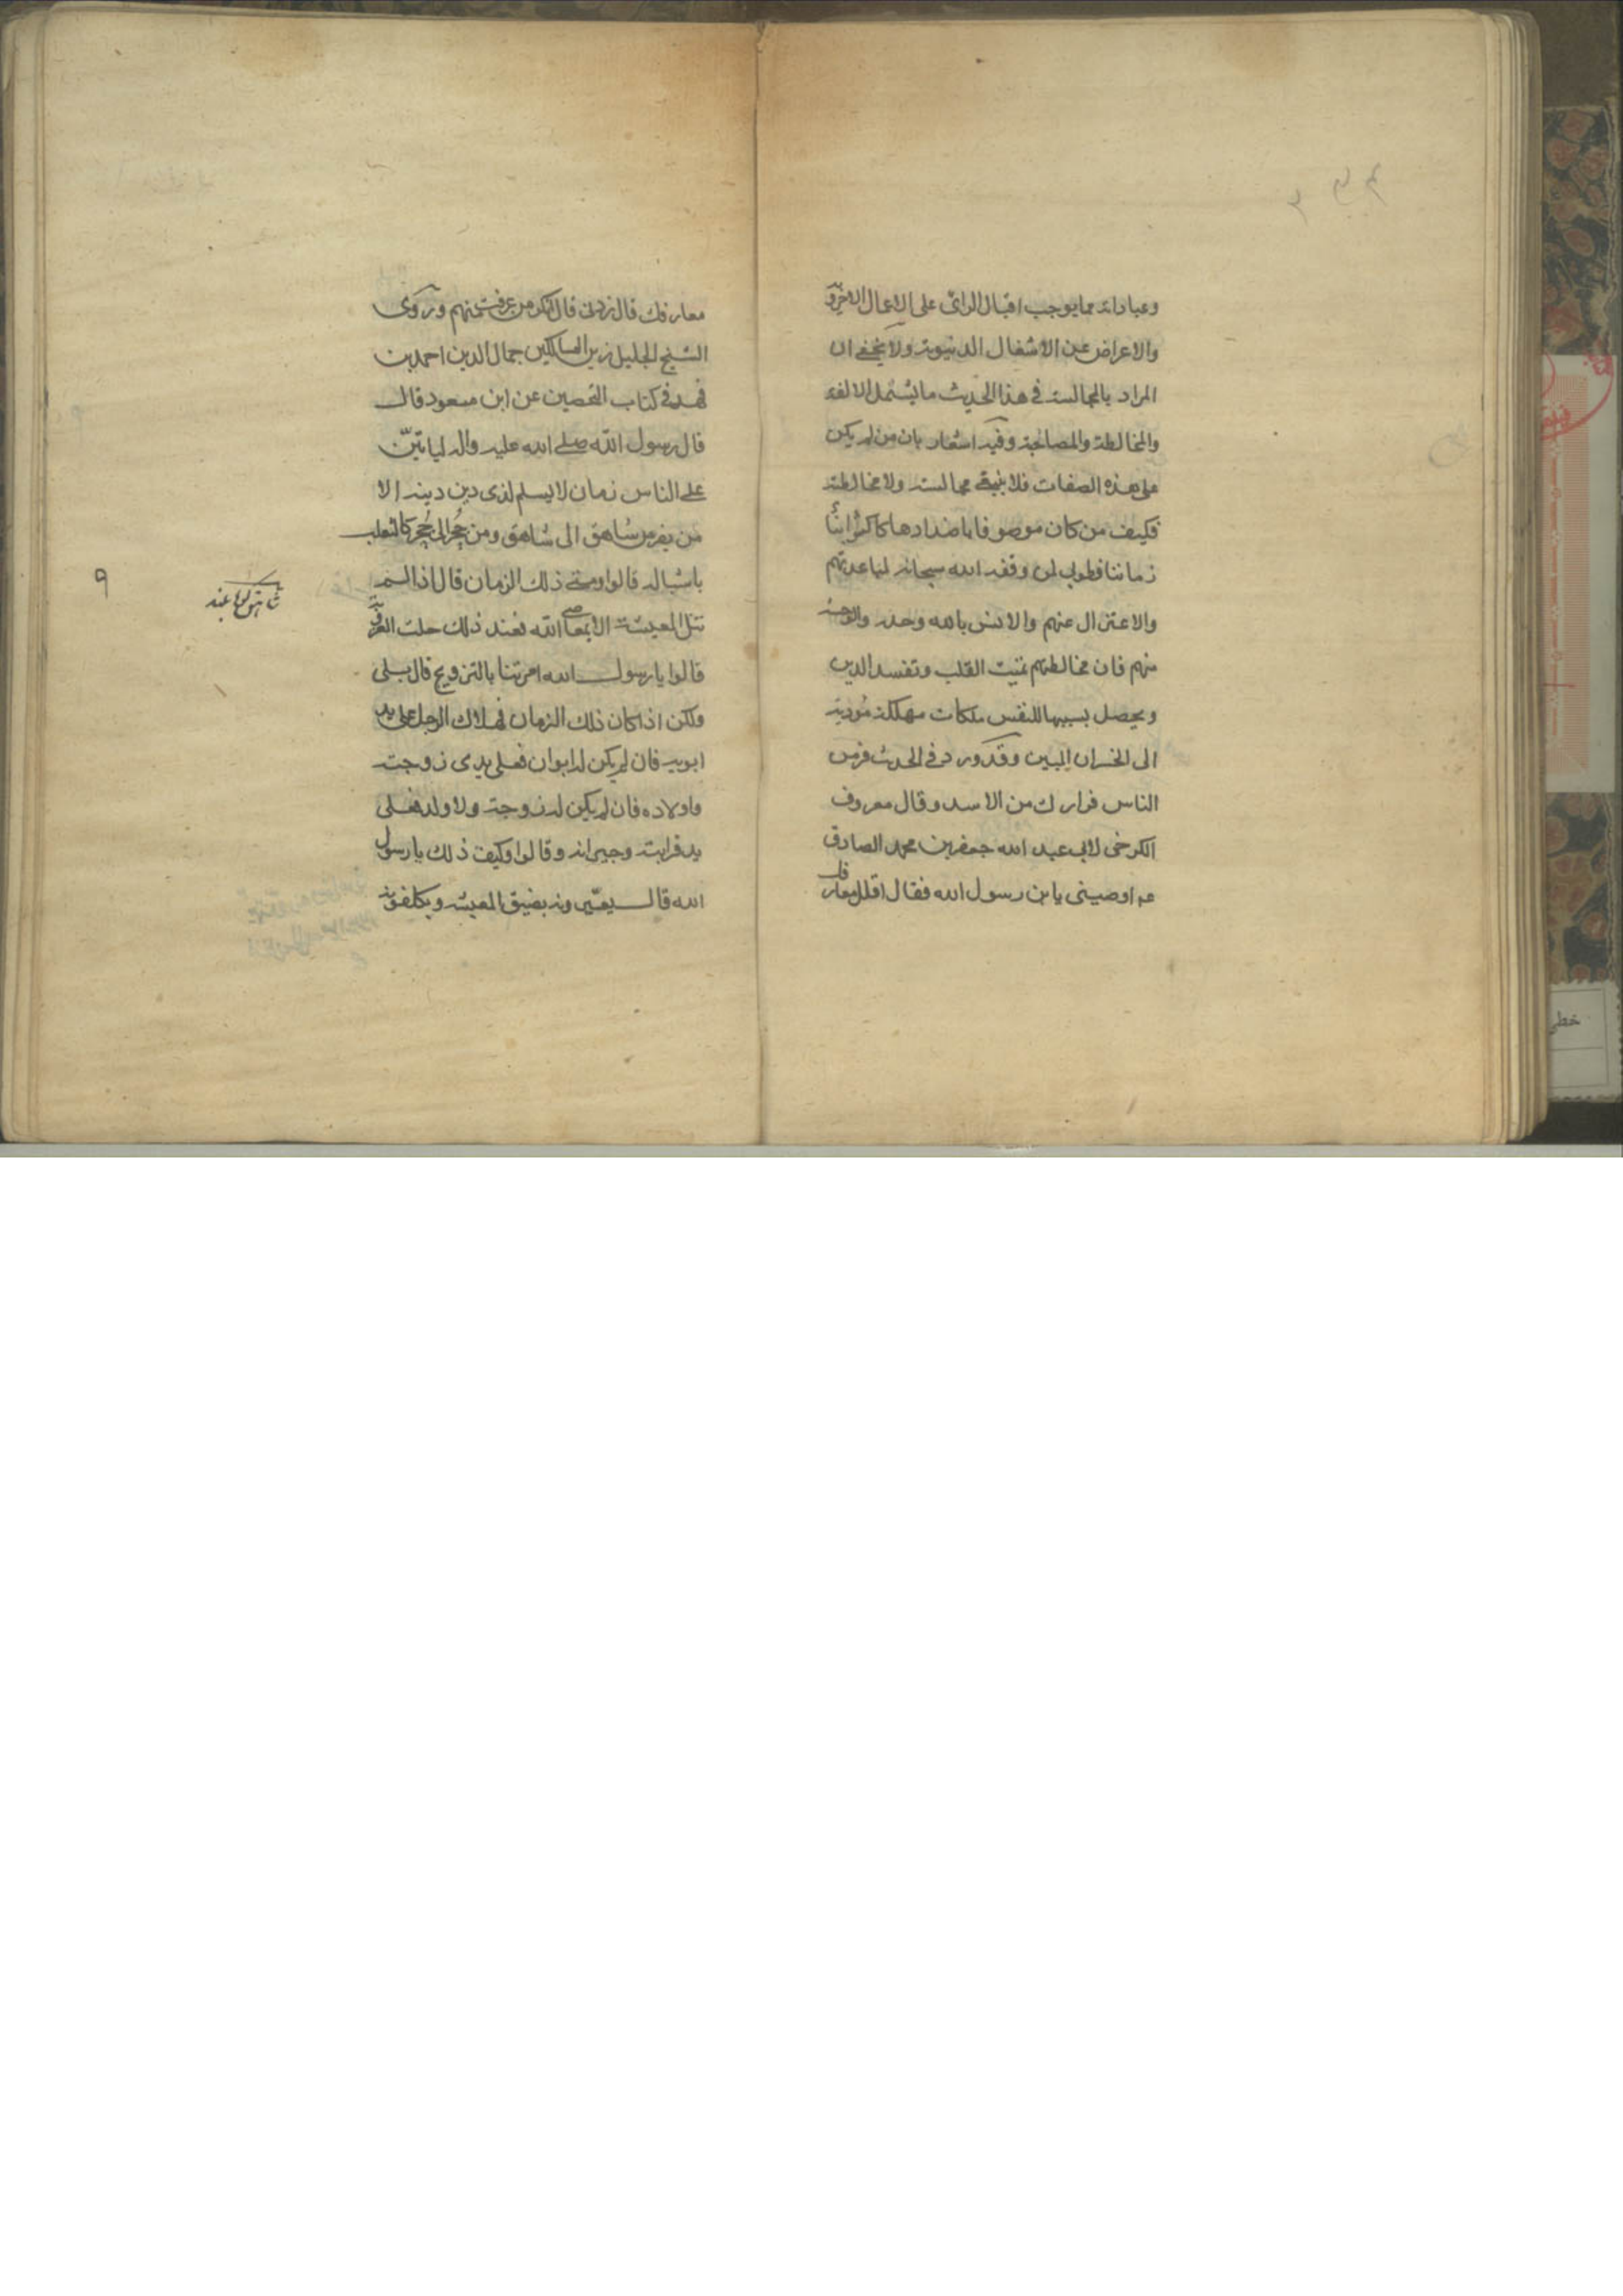 وعباداته مما يوجب اقبال الرائى على الاعمال الاخروية
والاعراض عن الاشغال الدنيوية ولا يخفى ان
المراد بالمجالسة فى هذا الحديث ما يشمل الالفة
والمخالطة والمصاحبة وفيه اشعار بان من لم يكن
على هذه الصفات فلا ينبغى مجالسته ولا مخالطته
فكيف من كان موصوفا باضدادها كاكثر ابناء
زماننا فطوبى لمن وفقه الله سبحانه لمباعدتهم
والاعتزال عنهم والانس بالله وحده والوحشة
منهم فان مخالطتهم تميت القلب وتفسد الدين
ويحصل بسببها للنفس ملكات مهلكة مؤدية
الى الخسران المبين وقد ورد فى الحديث فر من
الناس فرارك من الاسد وقال معروف
الكرخى لابى عبد الله جعفر بن محمد الصادق
عم اوصينى يا بن رسول الله فقال اقلل معارفك
معارفك قال زدنى قال انكر من عرفت منهم وروى
الشيخ الجليل زين السالكين جمال الدين احمد بن
فهد فى كتاب التحصين عن ابن مسعود قال
قال رسول الله صلى الله عليه واله لياتينّ
على الناس زمان لا يسلم لذى دين دينه الا
من يفر من شاهق الى شاهق ومن حُجر الى حُجر كالثعلب
باشباله قالوا ومتى ذلك الزمان قال اذا لم
تنل المعيشة الا بمعاصى الله فعند ذلك حلت العزوبة
قالوا يا رسول الله امرتنا بالتزويج قال بلى
ولكن اذا كان ذلك الزمان فهلاك الرجل على يد
ابويه فان لم يكن له ابوان فعلى يدى زوجته
واولاده فان لم يكن له زوجة ولا ولد فعلى
يد قرابته وجيرانه وقالوا وكيف ذلك يا رسول
الله قال يعيّرونه بضيق المعيشة ويكلفونه
شاهق كوه بلند
٩
خطى